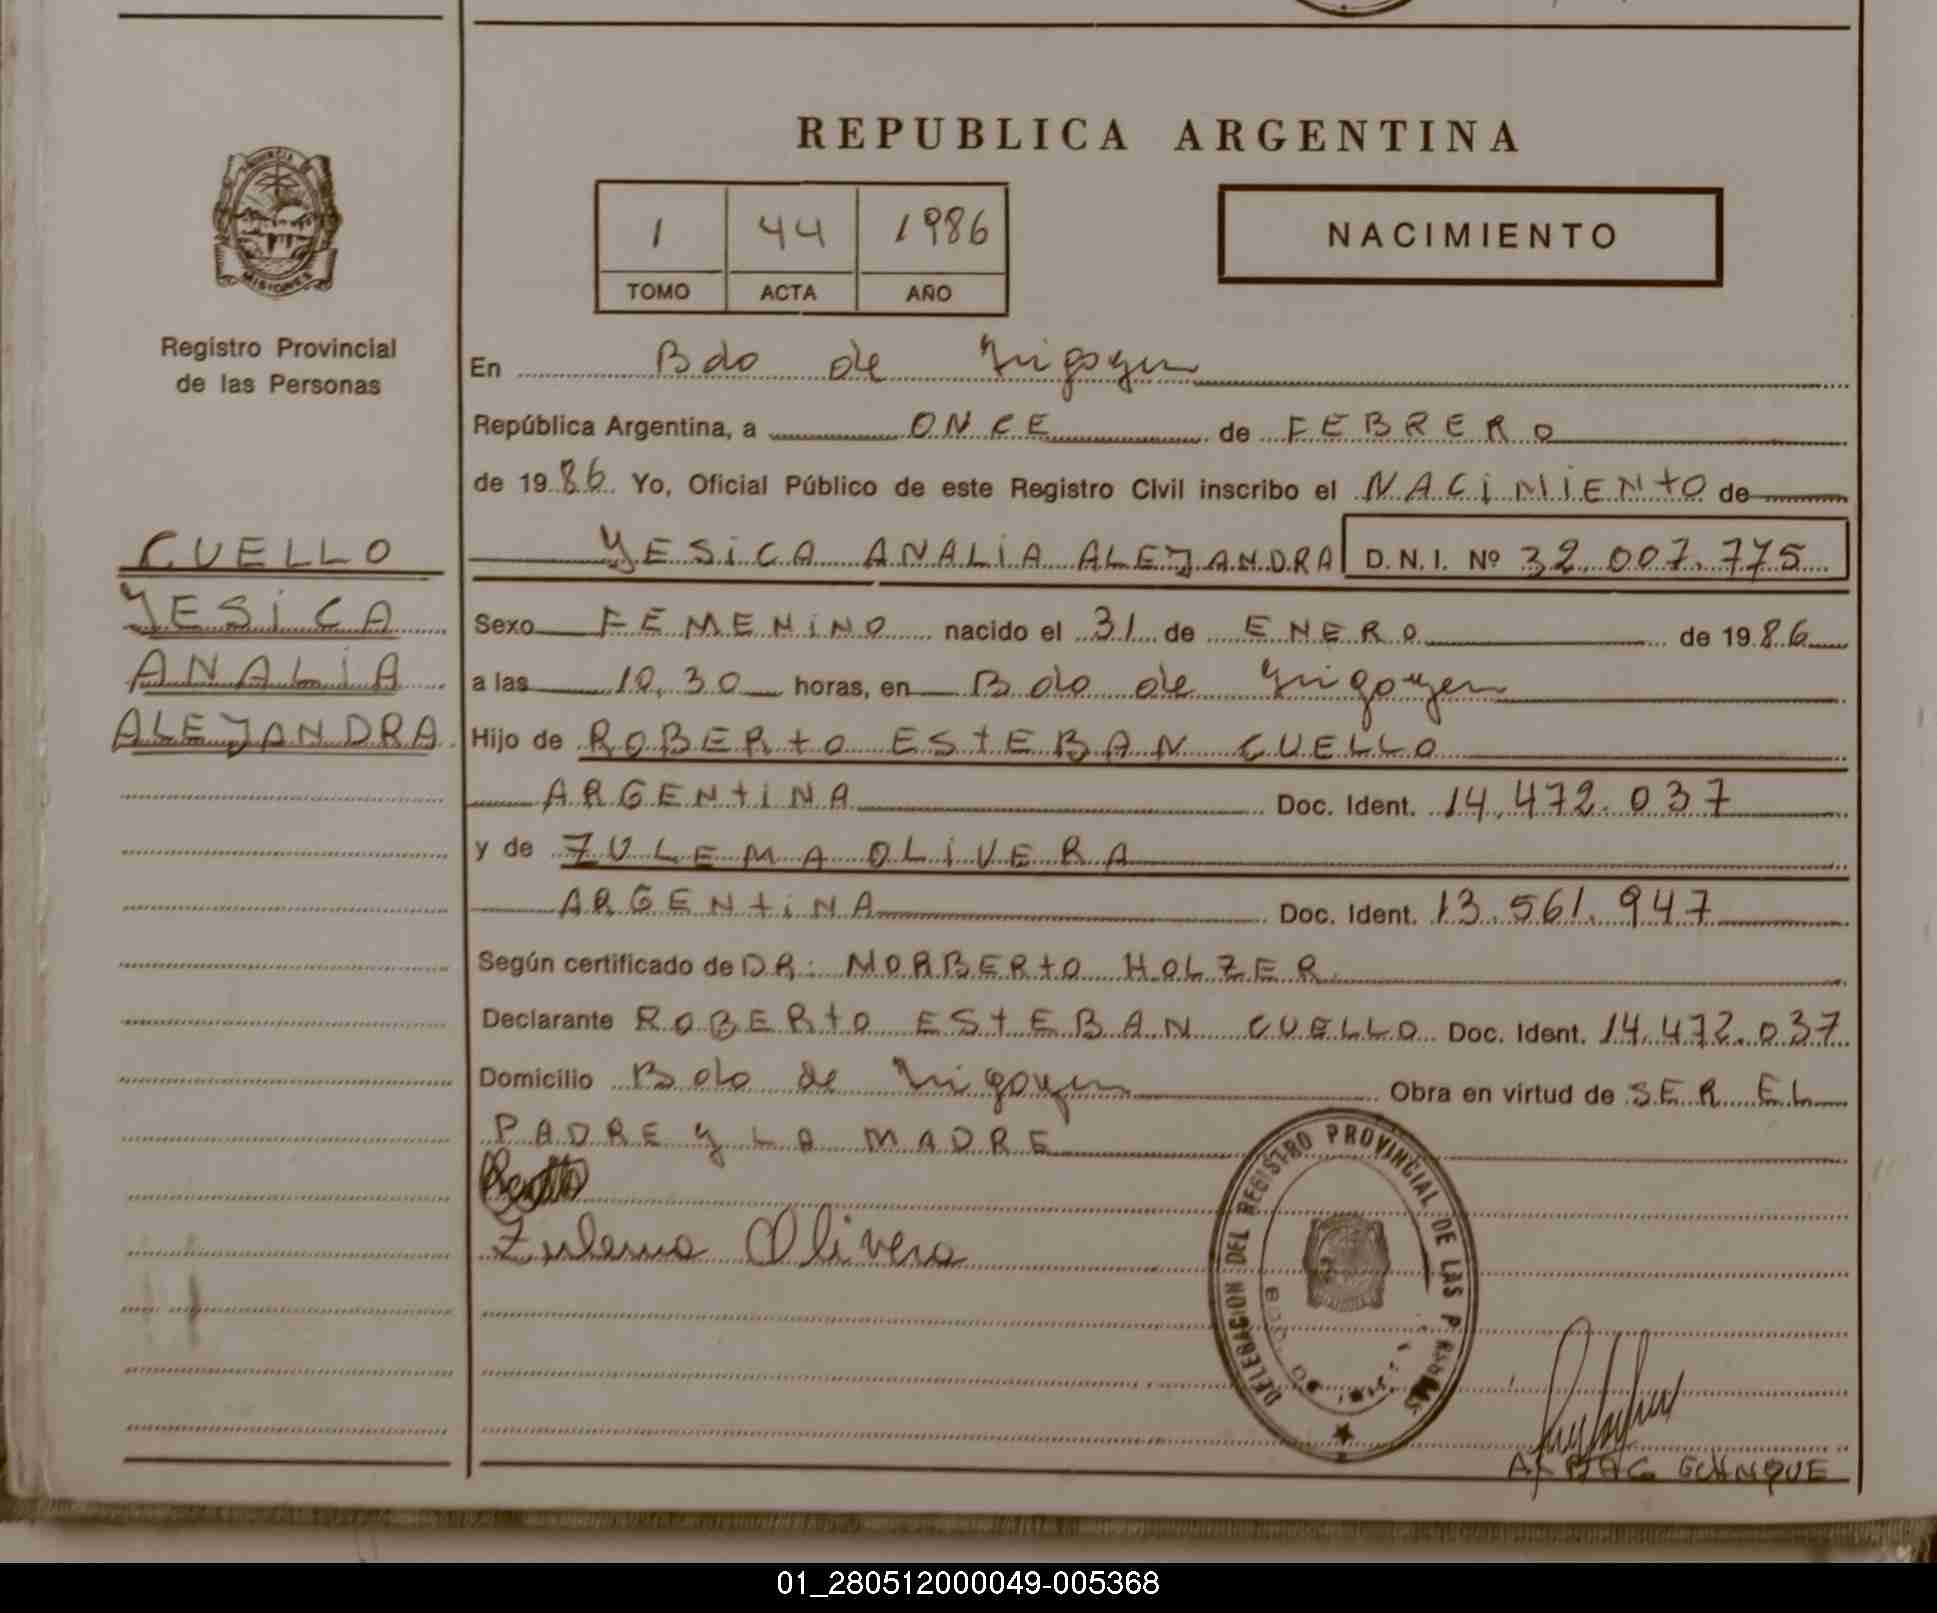 REPUBLICA ARGENTINA
PROVINCIA DE
MISIONES
Registro Provincial
de las Personas
1 44 1986
TOMO ACTA AÑO
NACIMIENTO
En Bdo de Yrigoyen
República Argentina, a ONCE de FEBRERO
de 1986 Yo, Oficial Público de este Registro Civil inscribo el NACIMIENTO de
CUELLO
YESICA
ANALIA
ALEJANDRA
YESICA ANALIA ALEJANDRA D.N.I. Nº 32.007.775
Sexo FEMENINO nacido el 31 de ENERO de 1986
a las 10,30 horas, en Bdo de Yrigoyen
Hijo de ROBERTO ESTEBAN CUELLO
ARGENTINA Doc. Ident. 14.472.037
y de ZULEMA OLIVERA
ARGENTINA Doc. Ident. 13.561.947
Según certificado de DR: NORBERTO HOLZER
Declarante ROBERTO ESTEBAN CUELLO Doc. Ident. 14.472.037
Domicilio Bdo de Yrigoyen Obra en virtud de SER EL
PADRE Y LA MADRE
Zulema Olivera
DELEGACION DEL REGISTRO PROVINCIAL DE LAS P RSONAS
01_280512000049-005368